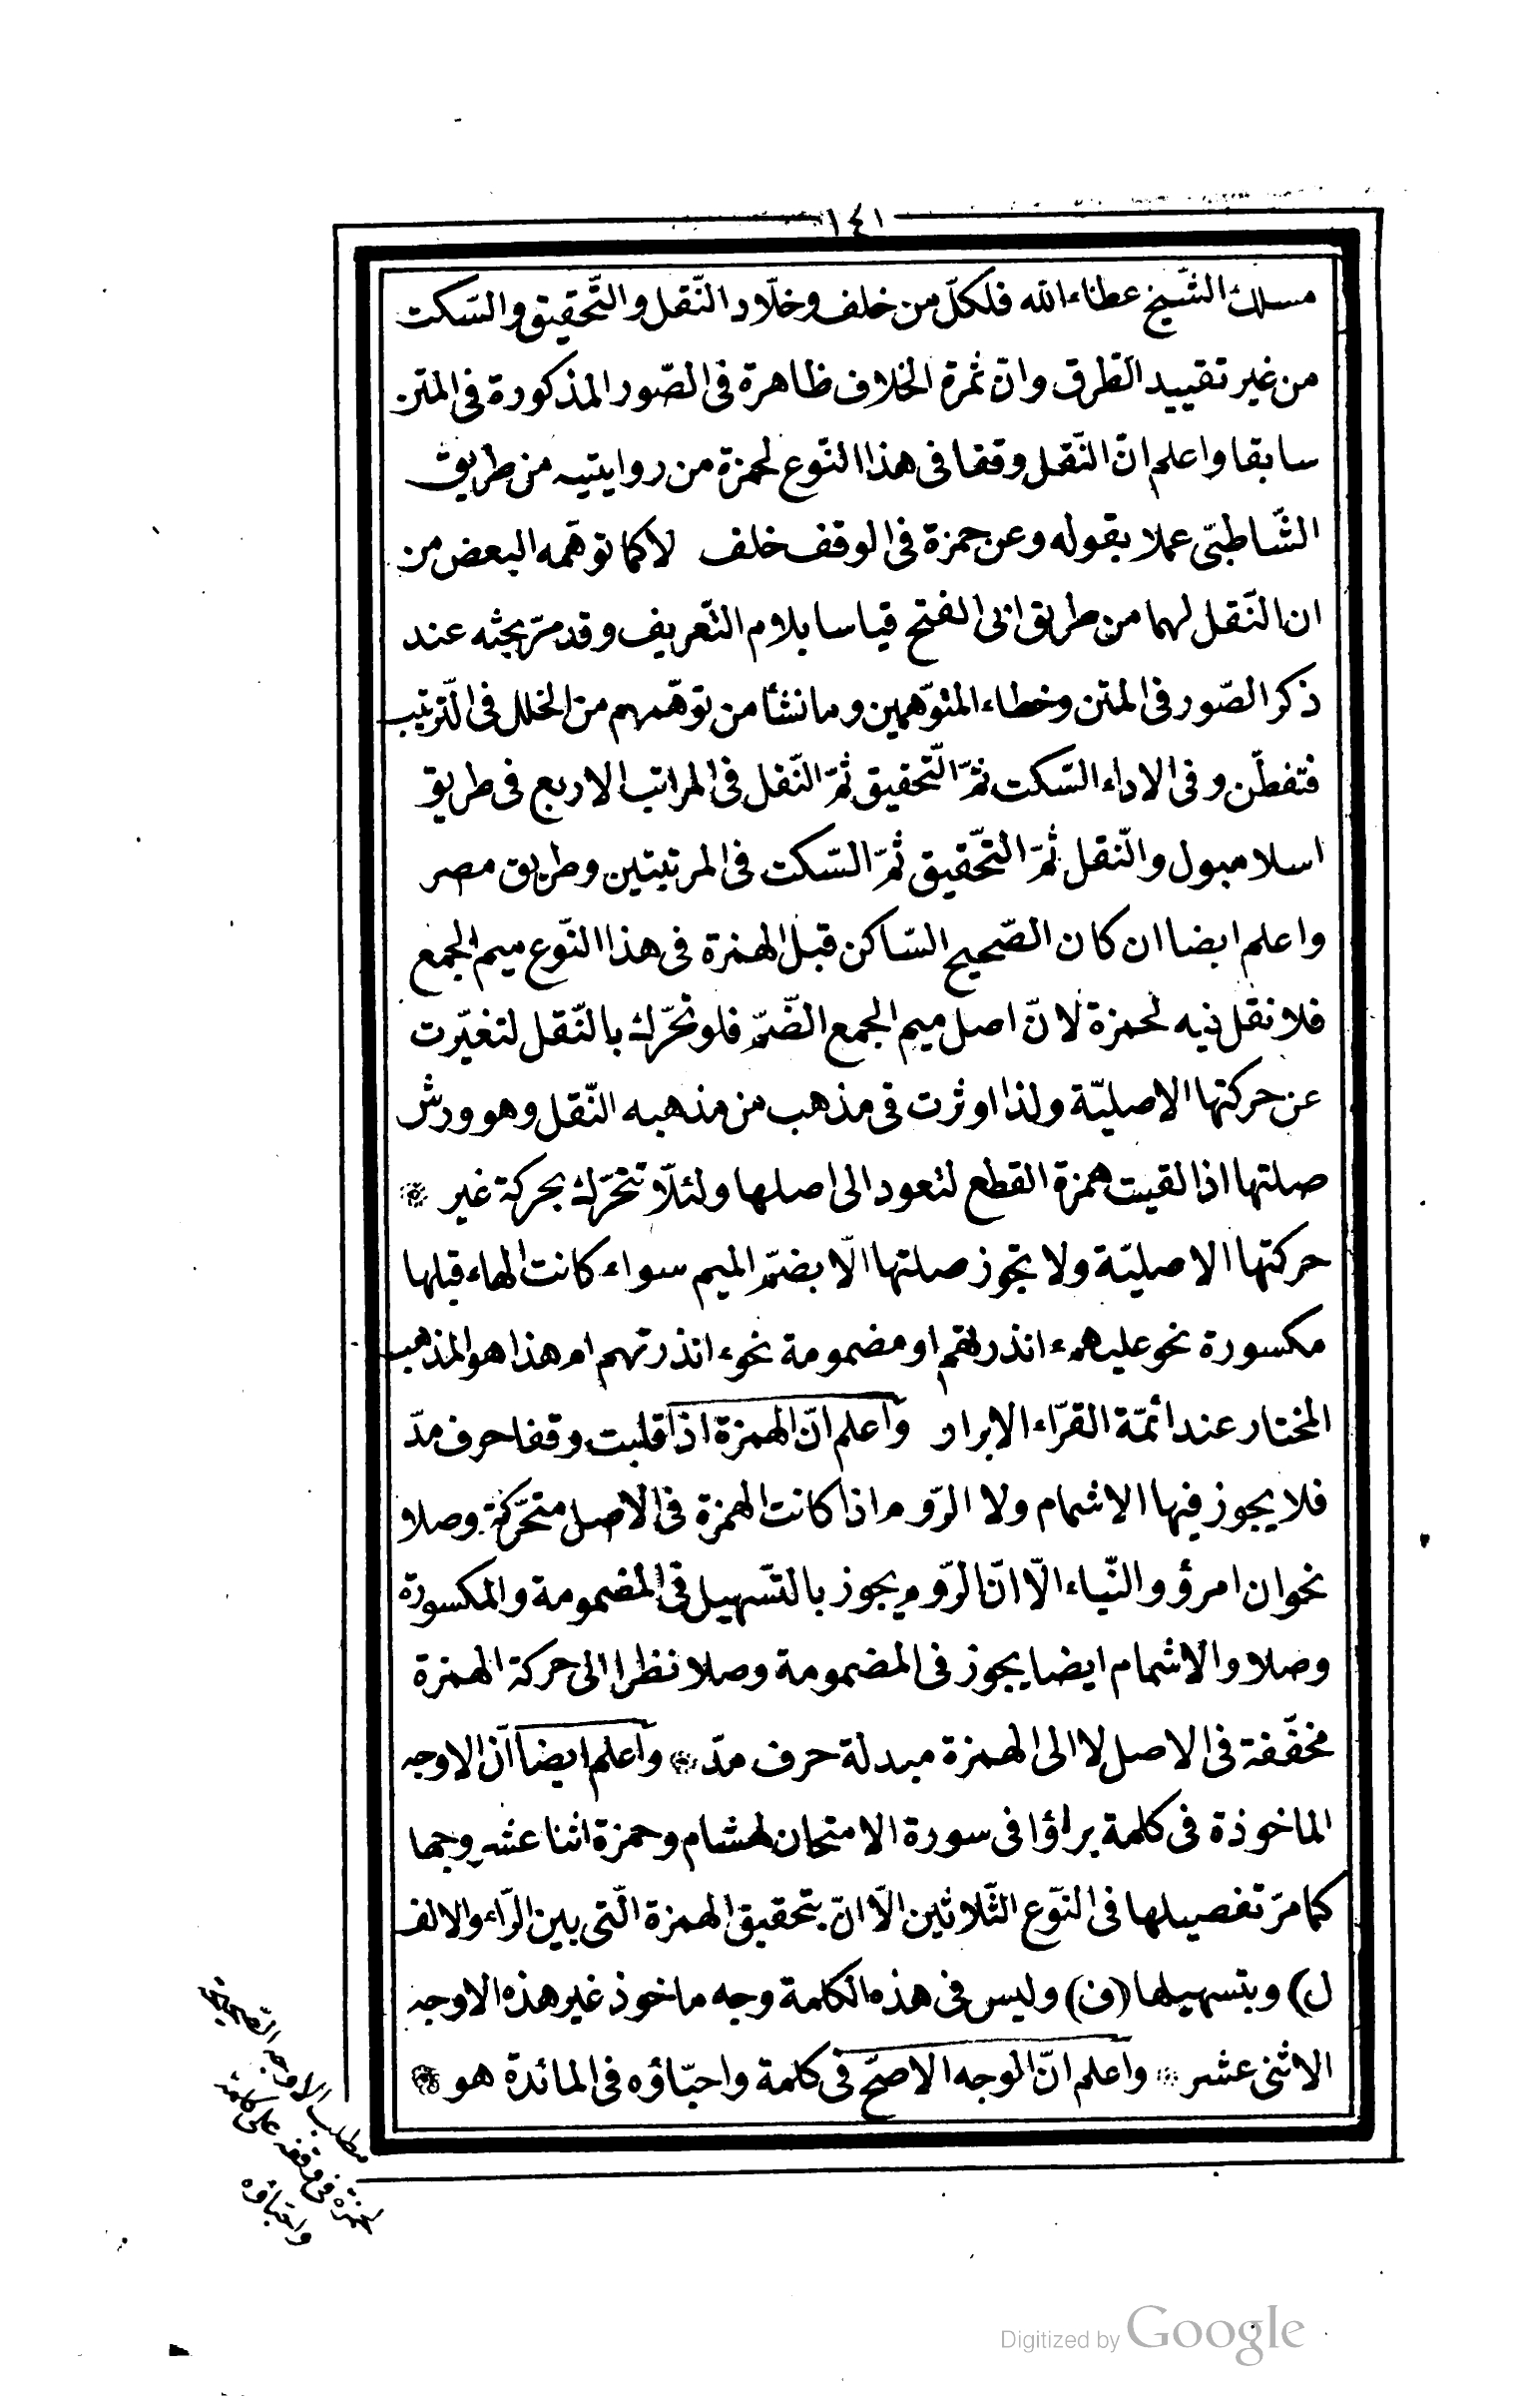 ١٤١
مسلك الشّيخ عطاء الله فلكلّ من خلف وخلّاد النّقل والتّحقيق والسّكت
من غير تقييد الطّرق وانّ ثمرة الخلاف ظاهرة فى الصّور المذكورة فى المتن
سابقا واعلم انّ النّقل وقفا فى هذا النّوع لحمزة من روايتيه من طريق
الشّاطبىّ عملا بقوله وعن حمزة فى الوقف خلف لا كما توهّمه البعض من
ان النّقل لهما من طريق ابى الفتح قياسا بلام التّعريف وقد مرّ بحثه عند
ذكر الصّور فى المتن وخطاء المتوّهمين وما نشأ من توهّمهم من الخلل فى التّرتيب
فتفطّن وفى الاداء السّكت ثمّ التّحقيق ثمّ النّقل فى المراتب الاربع فى طريق
اسلامبول والنّقل ثمّ التّحقيق ثمّ السّكت فى المرتبتين وطريق مصر
واعلم ايضا ان كان الصّحيح السّاكن قبل الهمزة فى هذا النّوع ميم الجمع
فلا نقل فيه لحمزة لانّ اصل ميم الجمع الضّمّ فلو تحرّك بالنّقل لتغيّرت
عن حركتها الاصليّة ولذا اوثرت فى مذهب من مذهبه النّقل وهو ورش
صلتها اذا لقيت همزة القطع لتعود الى اصلها ولئلّا تتحرّك بحركة غير
حركتها الاصليّة ولا تجوز صلتها الّا بضمّ الميم سواء كانت الهاء قبلها
مكسورة نحو عليهم ءانذرتهم او مضمومة نحو ءانذرتهم ام هذا هو المذهب
المختار عند ائمّة القرّاء الابرار واعلم انّ الهمزة اذا قلبت وقفا حرف مدّ
فلا يجوز فيها الاشمام ولا الرّوم اذا كانت الهمزة فى الاصل متحّركة وصلا
نحو ان امرؤ والنّباء الّا انّ الرّوم يجوز بالتّسهيل فى المضمومة والمكسورة
وصلا والاشمام ايضا يجوز فى المضمومة وصلا نظرا الى حركة الهمزة
مخفّفة فى الاصل لا الى الهمزة مبدلة حرف مدّ واعلم ايضا انّ الاوجه
الماخوذة فى كلمة براؤا فى سورة الامتحان لهشام وحمزة اثنا عشر وجها
كما مرّ تفصيلها فى النّوع الثّلاثين الّا انّ بتحقيق الهمزة الّتى بين الرّاء والالف
(ل) وبتسهيلها (ف) وليس فى هذه الكلمة وجه ماخوذ غير هذه الاوجه
الاثنى عشر واعلم انّ الوجه الاصحّ فى كلمة واحبّاؤه فى المائدة هو
مطلب الاوجه الصحيحة
لحمزة فى وقفه على كلمة
واحباؤه
Digitized by Google